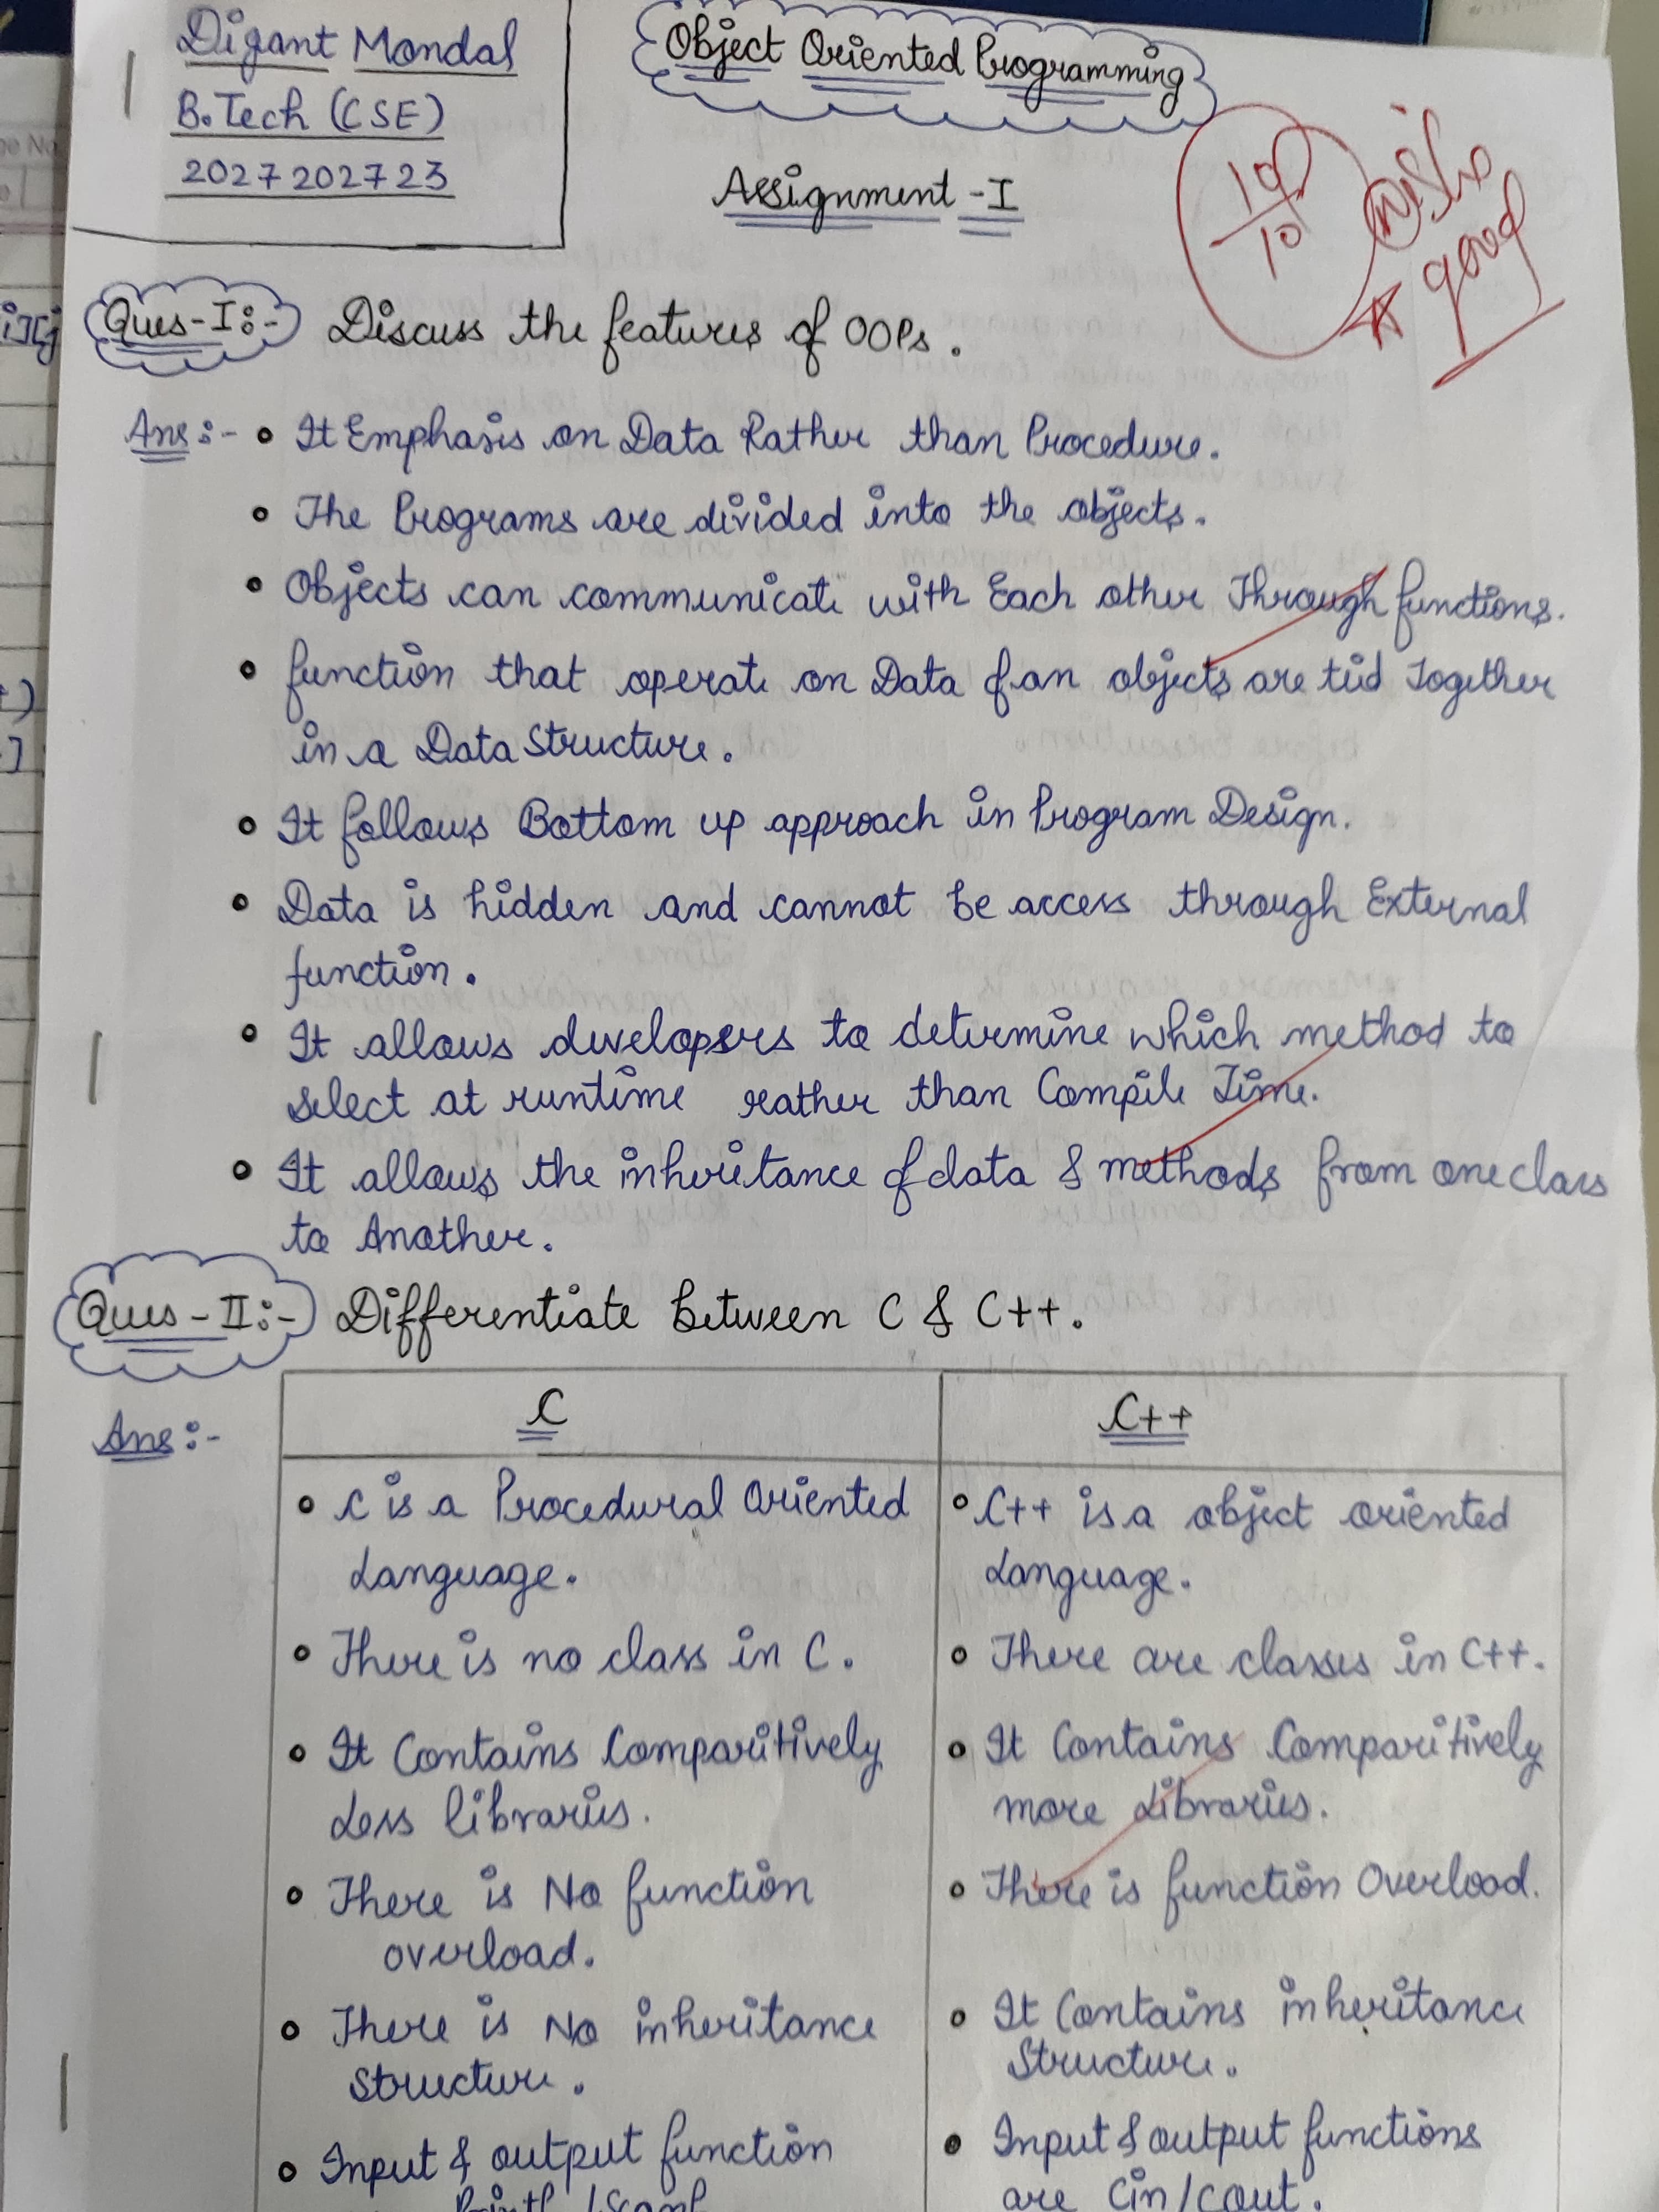 Digant Mondal
B.Tech (CSE)
2027202723
Object Oriented Programming
Assignment -I
10/10
good
Ques-I:- Discuss the features of OOPs.
Ans:- • It Emphasis on Data Rather than Procedure.
• The Programs are divided into the objects.
• Objects can communicate with Each other Through functions.
• function that operate on Data of an objects are tied Together
in a Data Structure.
• It follows Bottom up approach in Program Design.
• Data is hidden and cannot be access through External
function.
• It allows developers to determine which method to
select at runtime rather than Compile Time.
• It allows the inheritance of data & methods from one class
to Another.
Ques-II:- Differentiate between C & C++.
Ans:-
C
C++
• C is a Procedural Oriented
Language.
• C++ is a object oriented
Language.
• There is no class in C.
• There are classes in C++.
• It Contains Comparitively
Less libraries.
• It Contains Comparitively
more Libraries.
• There is No function
overload.
• There is function Overload.
• There is No inheritance
Structure.
• It Contains inheritance
Structure.
• Input & output function
• Input & output functions
are Cin/Cout.